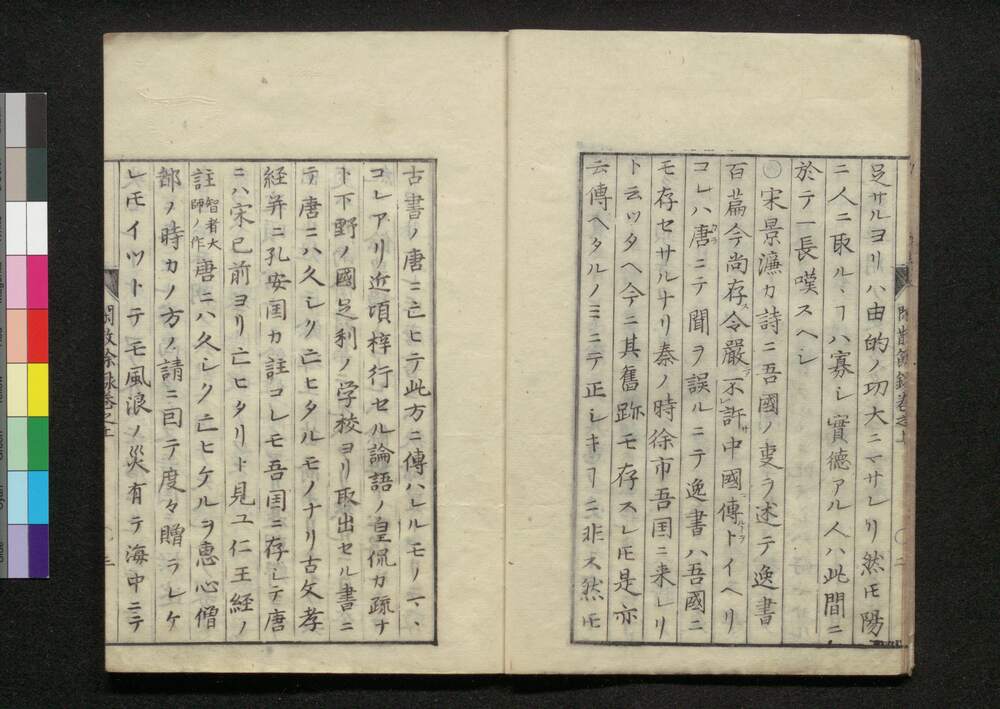 足サルヨリハ由的ノ功大ニマサレリ然𪜈陽
ニ人ニ取ルヿハ寡シ實德アル人ハ此間ニ
於テ一長嘆スヘシ
○宋景濂カ詩ニ吾國ノ叓ヲ述テ逸書
百篇今尚存ス令嚴ニ不許サ中國ニ傳ルヿヲトイヘリ
コレハ唐カラニテ聞ヲ誤ルニテ逸書ハ吾國ニ
モ存セサルナリ秦ノ時徐市吾囯ニ来レリ
ト云ツタヘ今ニ其舊跡モ存スレ𪜈是亦
云傳ヘタルノミニテ正シキヿニ非ス然𪜈
古書ノ唐ニ亡ヒテ此方ニ傳ハレルモノ一、
コレアリ近頃梓行セル論語ノ皇侃カ疏ナ
ト下野ノ國足利ノ学校ヨリ取出セル書ニ
テ唐ニハ久シク亡ヒタルモノナリ古文孝
経并ニ孔安囯カ註コレモ吾囯ニ存シテ唐
ニハ宋已前ヨリ亡ヒタリト見ユ仁王経ノ
註智者大師ノ作唐ニハ久シク亡ヒケルヲ恵心僧
都ノ時カノ方ノ請ニ囙テ度々贈ラレケ
レ𪜈イツトテモ風浪ノ災有テ海中ニテ